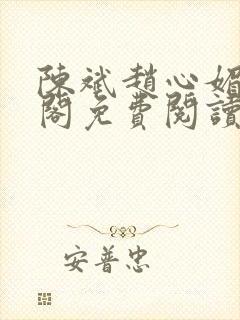 陳斌趙心媚
閣免費閱讀
安普忠